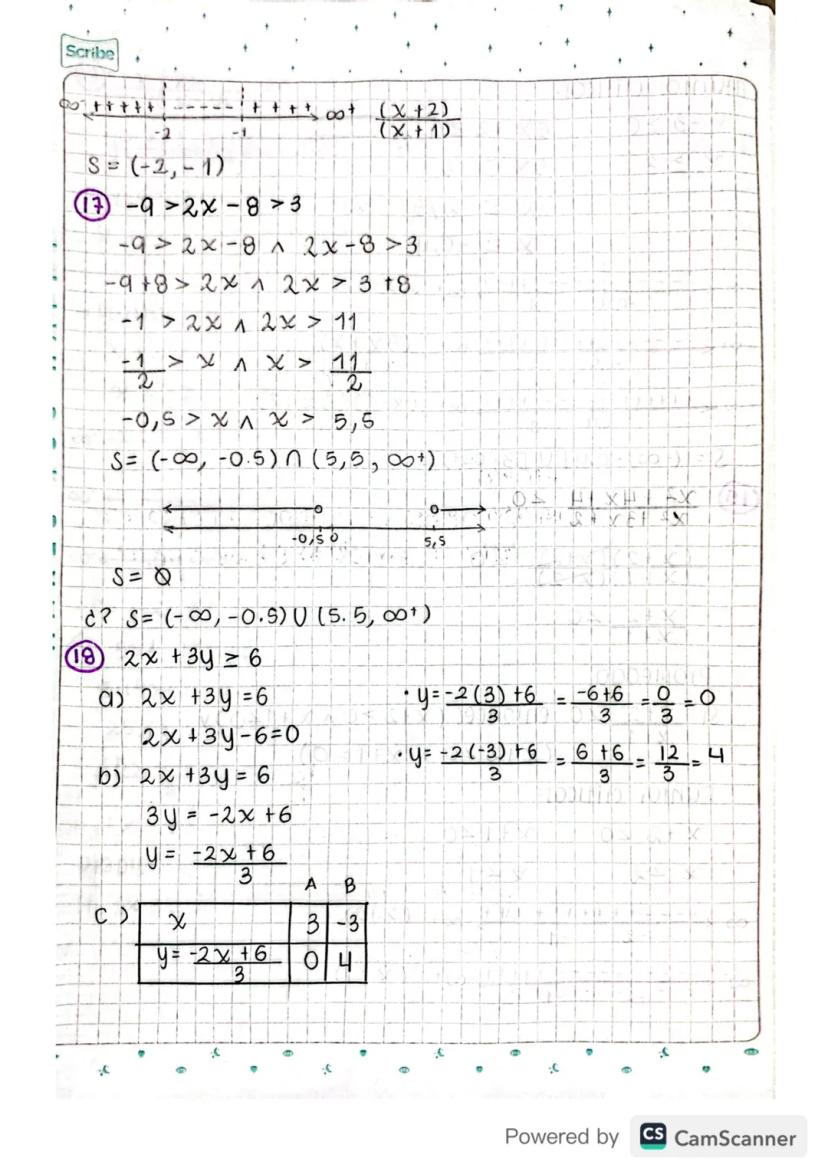 Scribe
∞⁻ +++++ ------ ++++ ∞⁺ (x+2)/(x+1)
-2 -1
S = (-2, -1)
17 -9 > 2x - 8 > 3
-9 > 2x - 8 ∧ 2x - 8 > 3
-9 + 8 > 2x ∧ 2x > 3 + 8
-1 > 2x ∧ 2x > 11
-1/2 > x ∧ x > 11/2
-0,5 > x ∧ x > 5,5
S = (-∞, -0.5) ∩ (5,5, ∞⁺)
-0,5 0 5,5
S = Ø
¿? S = (-∞, -0.5) ∪ (5.5, ∞⁺)
18 2x + 3y ≥ 6
a) 2x + 3y = 6
2x + 3y - 6 = 0
b) 2x + 3y = 6
3y = -2x + 6
y = (-2x + 6)/3
· y = (-2(3) + 6)/3 = (-6+6)/3 = 0/3 = 0
· y = (-2(-3) + 6)/3 = (6 + 6)/3 = 12/3 = 4
A B
c) x 3 -3
y = (-2x + 6)/3 0 4
Powered by CS CamScanner